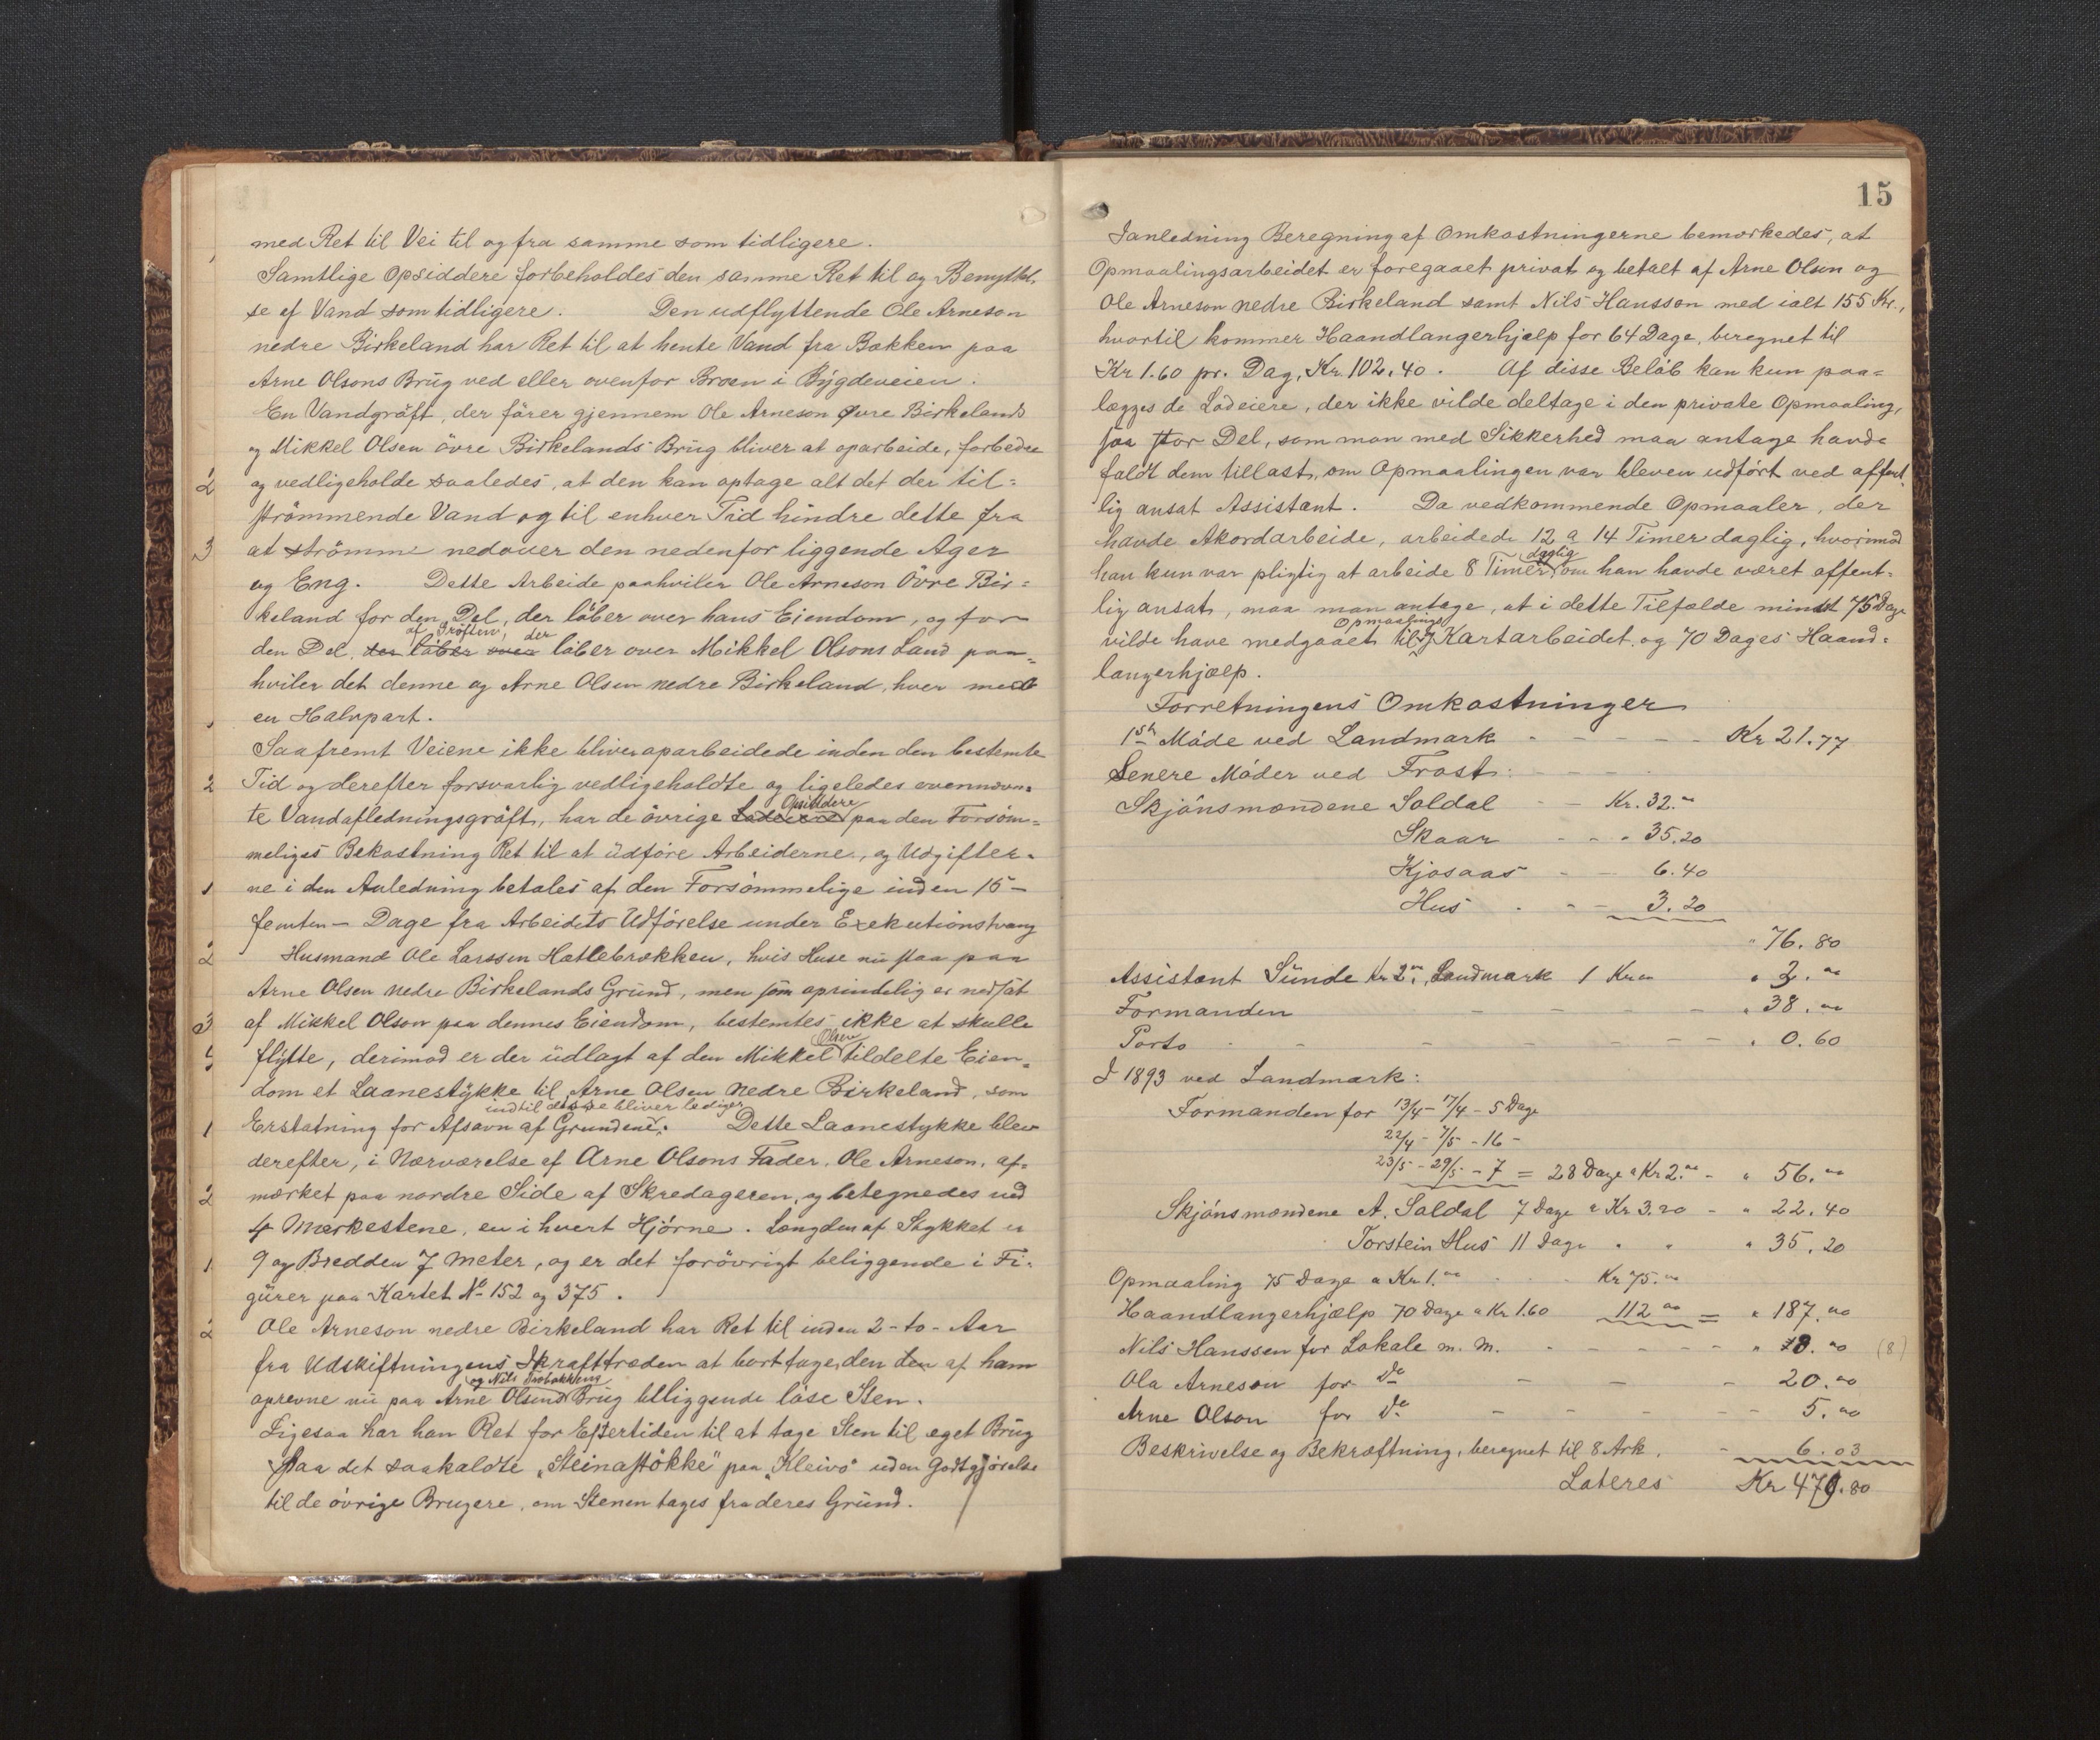 med Ret til Vei til og fra samme som tidligere.
Samtlige Opsiddere forbeholdes den samme Ret til og Benyttel,
se af Vand som tidligere. Den udflyttende Ole Arneson
nedre Birkeland har Ret til at hente Vand fra Bækken paa
Arne Olsons Brug ved eller ovenfor Broen i Bygdeveien.
En Vandgröft, der förer gjennem Ole Arneson Øvre Birkelands
og Mikkel Olsen övre Birkelands Brug bliver at oparbeide, forbedre
2 og vedligeholde saaledes, at den kan optage alt det der til=
strömmende Vand og til enhver Tid hindre dette fra
3 at strömme nedover den nedenfor liggende Ager
og Eng. Dette Arbeide paahviler Ole Arneson Övre Bir=
keland for den Del, der löber over hans Eiendom, og for
af Gröften, der
den Del der löber over löber over Mikkel Olsons Land paa=
hviler det denne og Arne Olsen nedre Birkeland, hver med
en Halvpart.
Saafremt Veiene ikke bliver oparbeidede inden den bestemte
2 Tid og derefter forsvarlig vedligeholdte og ligeledes ovennævn=
Opsiddere
te Vandafledningsgröft, har de övrige Lodeiere paa den Forsöm=
meliges Bekostning Ret til at udföre Arbeiderne, og Udgifter=
1 ne i den Anledning betales af den Forsömmelige inden 15 –
femten – Dage fra Arbeidets Udförelse under Exekutionstvang
2 Husmand Ole Larssen Hatlebrekken, hvis Huse nu staa paa
Arne Olsen nedre Birkelands Grund, men som oprindelig er nedsat
3 af Mikkel Olson paa dennes Eiendom, bestemtes ikke at skulle
Olsen
5 flytte, derimod er der udlagt af den Mikkel tildelte Eien=
dom et Laanestykke til Arne Olsen Nedre Birkeland, som
indtil disse bliver lediger
1 Erstatning for Afsavn af Grundene. Dette Laanestykke blev
derefter, i Nærværelse af Arne Olsons Fader, Ole Arneson, af=
2 mærket paa nordre Side af Skredageren, og betegnedes ved
4 Mærkestene, en i hvert Hjörne. Længden af Stykket er
1 9 og Bredden 7 Meter, og er det forövrigt beliggende i Fi=
gurer paa Kartet No 152 og 375.
2 Ole Arneson nedre Birkeland har Ret til inden 2 - to - Aar
fra Udskiftningens Ikrafttræden at borttage den den af ham
og Nils
oprevne nu paa Arne Olsens Brug tilliggende löse Sten.
Ligesaa har han Ret for Eftertiden til at tage Sten til eget Brug
paa det saakaldte „Steinastökke" paa „Kleivo" uden Godtgjörelse
til de övrige Brugere, om Stenen tages fra deres Grund.
15
Ianledning Beregning af Omkostningerne bemærkedes, at
Opmaalingsarbeidet er foregaaet privat og betalt af Arne Olsen og
Ole Arneson nedre Birkeland samt Nils Hansson med ialt 155 Kr.,
hvortil kommer Haandlangerhjælp for 64 Dage, beregnet til
Kr 1.60 pr. Dag, Kr. 102.40. Af disse Belöb kan kun paa=
lægges de Lodeiere, der ikke vilde deltage i den private Opmaaling,
saa stor Del, som man med Sikkerhed maa antage havde
faldt dem tillast, om Opmaalingen var bleven udfört ved offent
lig ansat Assistant. Da vedkommende Opmaaler, der
havde Akordarbeide, arbeidede 12 a 14 Timer daglig, hvorimod
daglig
han kun var pligtig at arbeide 8 Timer om han havde været offent=
lig ansat, maa man antage, at i dette Tilfælde mindst 75 Dage
Opmaalings
vilde have medgaaet til og Kartarbeidet og 70 Dages Haand=
langerhjælp.
Forretningens Omkostninger
1ste Möde ved Landmark - - - - - Kr 21.77
Senere Möder ved Frost: - - -
Skjönsmændene Soldal - - Kr. 32.00
Skaar - - " 35.20
Kjosaas - - 6.40
Hus - - - 3.20
" 76.80
Assistant Sunde Kr 2.00, Landmark 1 Kr " 3.00
Formanden - - - - " 38.00
Porto - - - - - - " 0.60
I 1893 ved Landmark:
Formanden for 13/4 – 17/4 – 5 Dage
22/4 – 7/5 – 16 –
23/5 – 29/5 – 7 = 28 Dage a Kr 2.00 - " 56.00
Skjönsmændene A. Soldal 7 Dage a Kr 3.20 - " 22.40
Torstein Hus 11 Dage " " " 35.20
Opmaaling 75 Dage a Kr 1.00 - - Kr 75.00
Haandlangerhjælp 70 Dage a Kr 1.60 112.00 = " 187.00
Nils Hanssen for Lokale m. m. - - - - - " 8.00 (8)
Ola Arneson for Do - - - 20.00
Arne Olson for Do - - - - - 5.00
Beskrivelse og Bekræftning, beregnet til 8 Ark. - 6.03
Lateres Kr 479.80